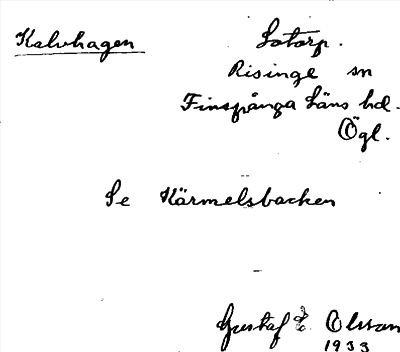 Kalvhagen
Lotorp.
Risinge sn
Finspånga Läns hd.
Ögl.
Se Kärmelsbacken
Gustaf E. Olsson
1933